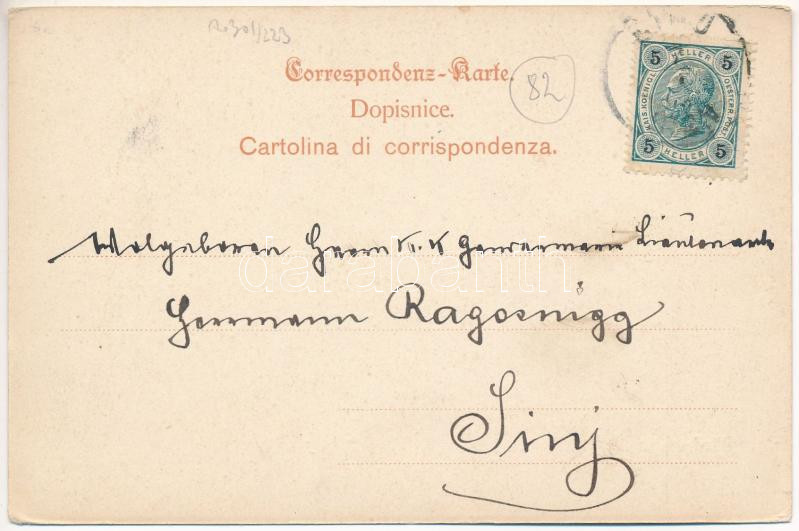 20301/223
82
Correspondenz-Karte.
Dopisnice.
Cartolina di corrispondenza.
5 HELLER 5
KAIS. KOENIGL. OESTERR. POST
5 HELLER 5
Wolgeboren Herrn K. K Gendarmerie Lieutenant
Herrmann Ragosnigg
Sinj
darabanth